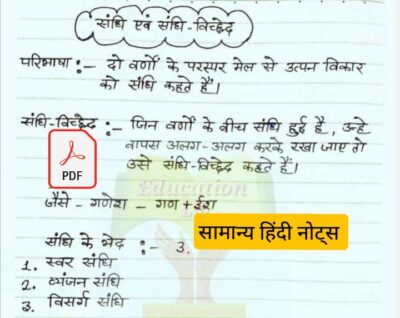 संधि एवं संधि-विच्छेद
परिभाषा :- दो वर्णों के परस्पर मेल से उत्पन विकार
को संधि कहते हैं।
संधि-विच्छेद :- जिन वर्णों के बीच संधि हुई है, उन्हे
वापस अलग-अलग करके रखा जाए तो
उसे संधि-विच्छेद कहते हैं।
PDF
Education
जैसे - गणेश - गण + ईश
सामान्य हिंदी नोट्स
संधि के भेद :- 3.
1. स्वर संधि
2. व्यंजन संधि
3. विसर्ग संधि